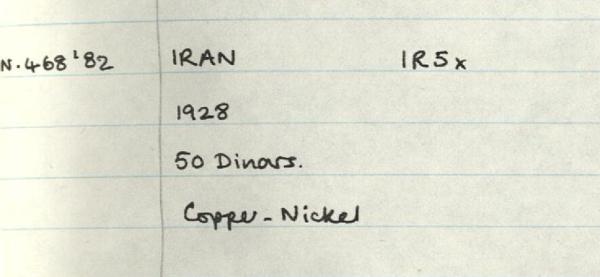 N.468'82 IRAN IR5x
1928
50 Dinars.
Copper-Nickel